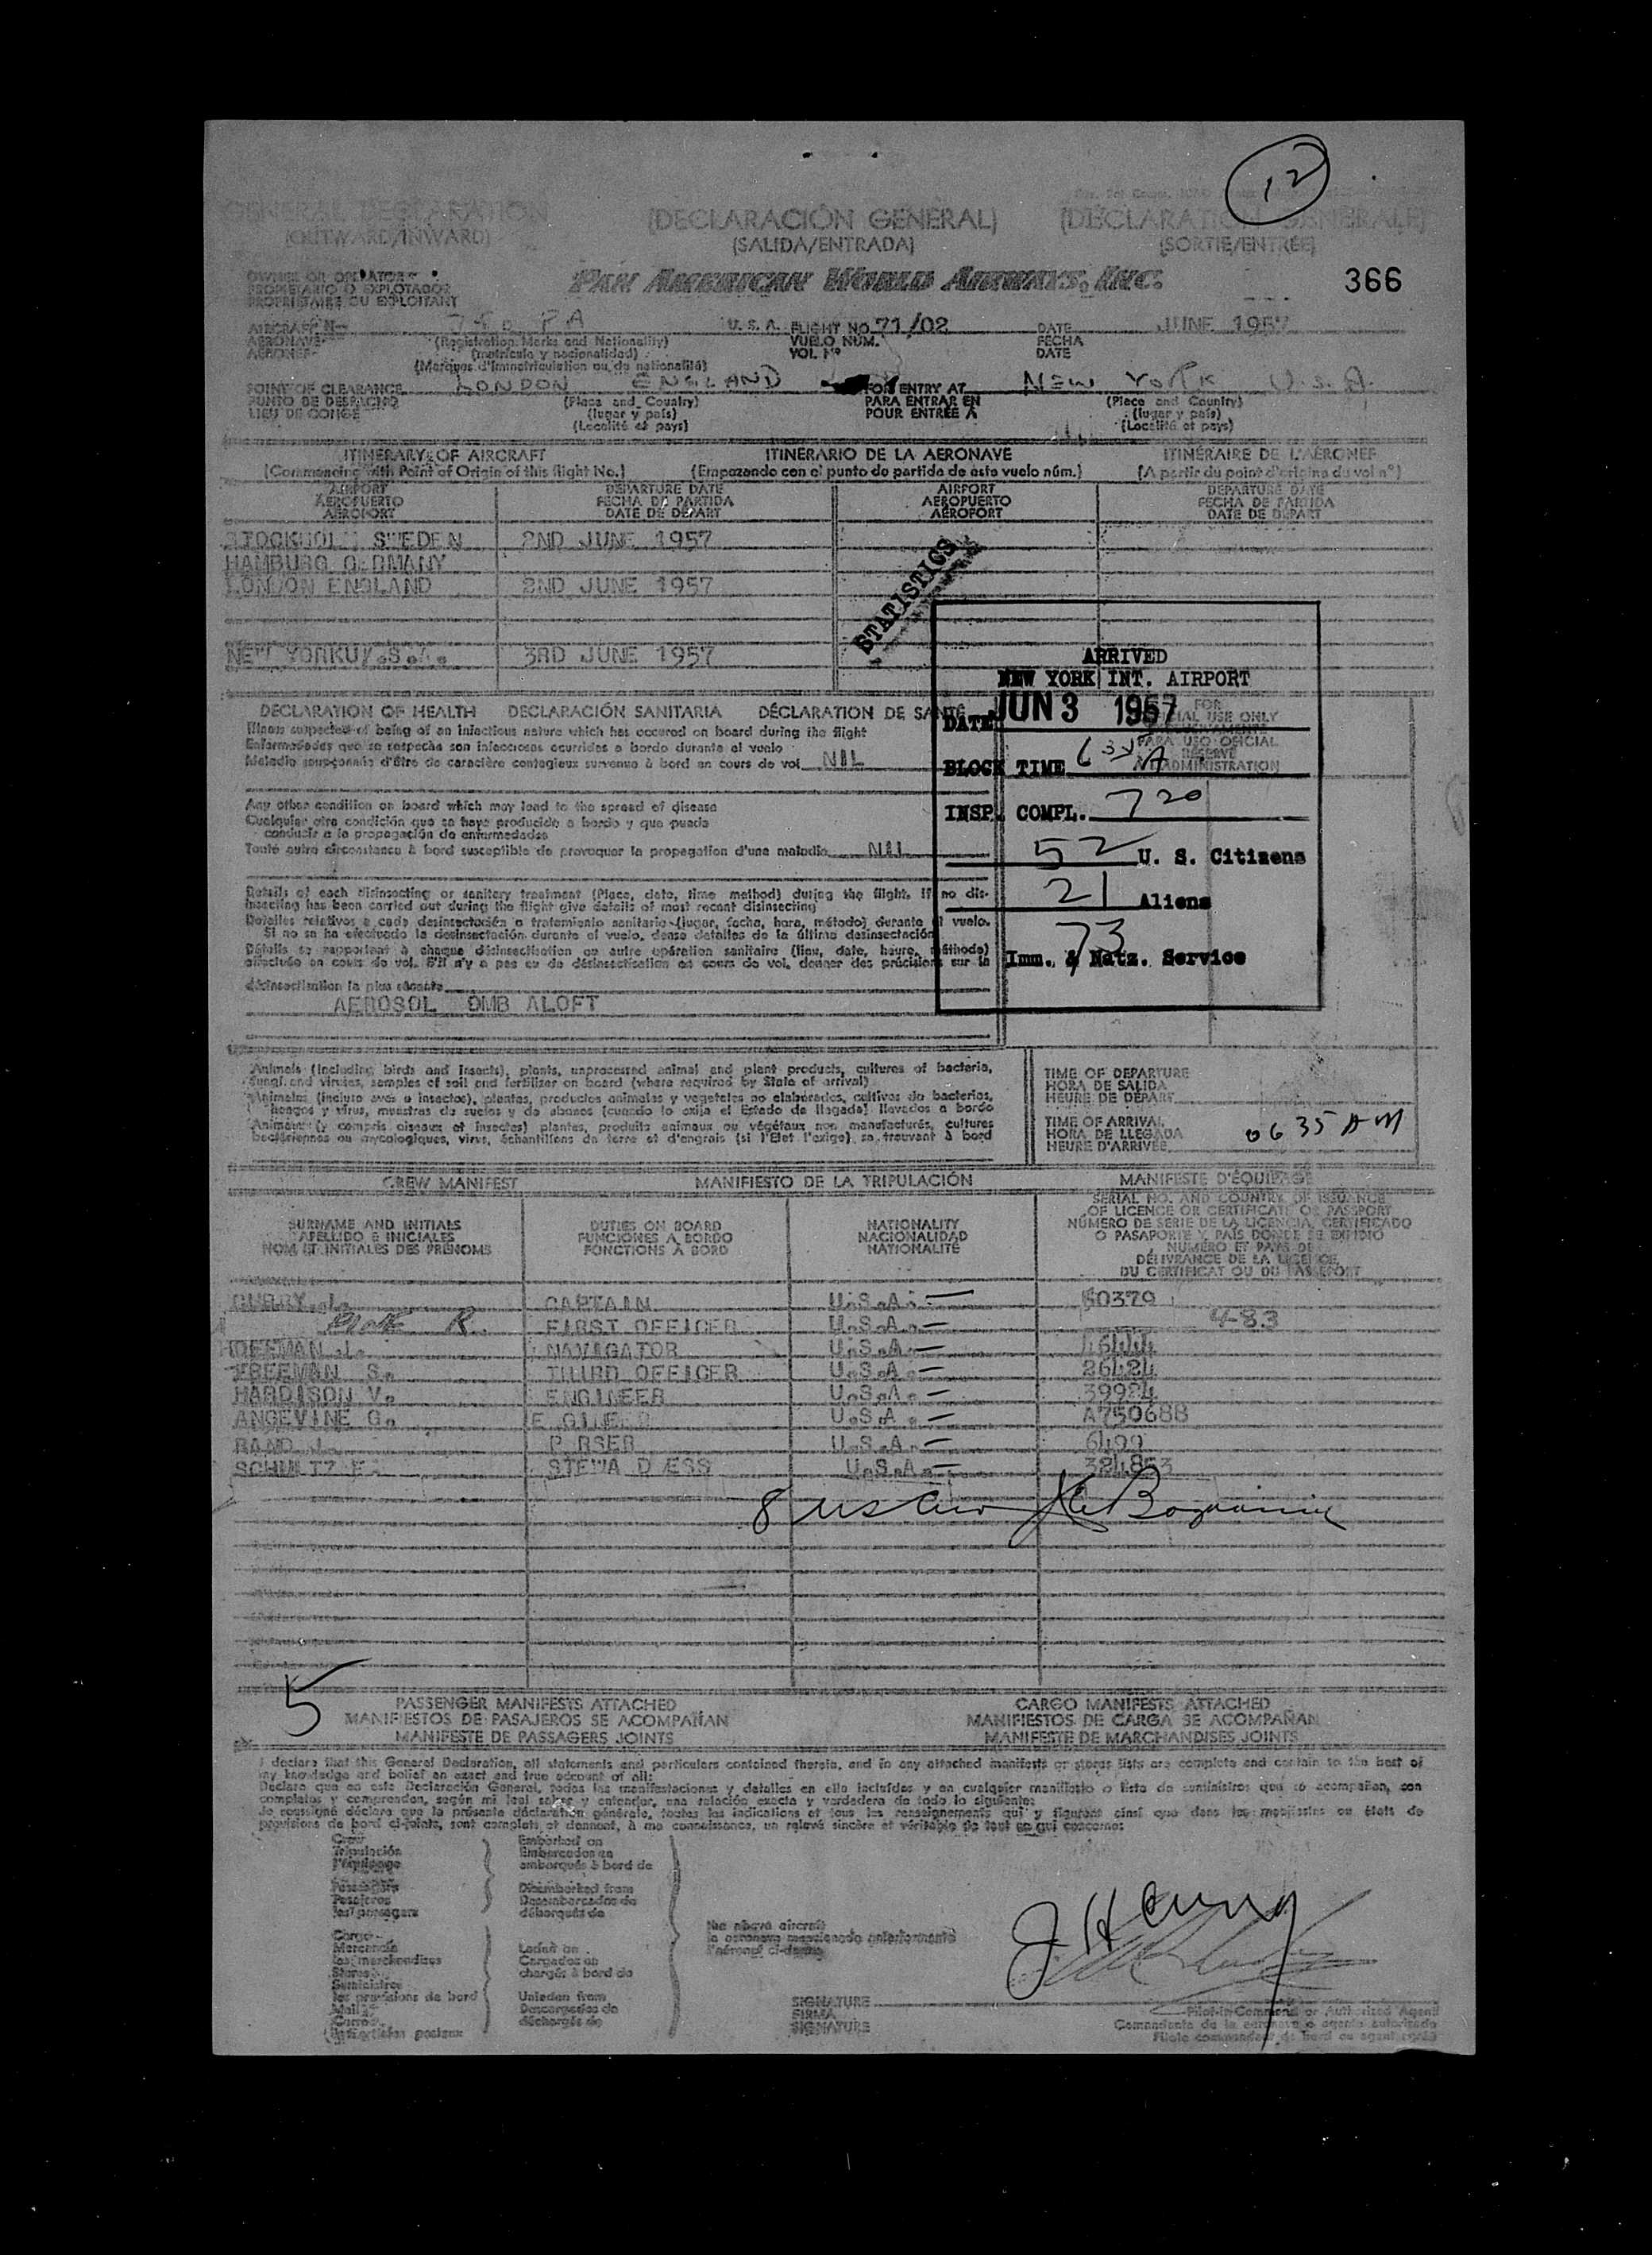 12
GENERAL DECLARATION (DECLARACIÓN GENERAL) (DÉCLARATION GÉNÉRALE)
(OUTWARD/INWARD) (SALIDA/ENTRADA) (SORTIE/ENTRÉE)
OWNER OR OPERATOR PAN AMERICAN WORLD AIRWAYS, INC. 366
PROPIETARIO O EXPLOTADOR
PROPRIÉTAIRE OU EXPLOITANT
AIRCRAFT N PA U. S. A. FLIGHT NO. 71/02 DATE JUNE 1957
AERONAVE (Registration Marks and Nationality) VUELO NÚM. FECHA
AÉRONEF (matrícula y nacionalidad) VOL Nº DATE
(Marques d'immatriculation ou de nationalité)
POINT OF CLEARANCE LONDON ENGLAND FOR ENTRY AT NEW YORK U.S.A.
PUNTO DE DESPACHO (Place and Country) PARA ENTRAR EN (Place and Country)
LIEU DE CONGÉ (lugar y país) POUR ENTRÉE À (lugar y país)
(Localité et pays) (Localité et pays)
ITINERARY OF AIRCRAFT ITINERARIO DE LA AERONAVE ITINÉRAIRE DE L'AÉRONEF
(Commencing with Point of Origin of this flight No.) (Empezando con el punto de partida de este vuelo núm.) (A partir du point d'origine du vol nº)
AIRPORT DEPARTURE DATE AIRPORT DEPARTURE DATE
AEROPUERTO FECHA DE PARTIDA AEROPUERTO FECHA DE PARTIDA
AÉROPORT DATE DE DÉPART AÉROPORT DATE DE DÉPART
STOCKHOLM SWEDEN 2ND JUNE 1957
HAMBURG GERMANY
LONDON ENGLAND 2ND JUNE 1957
STATISTICS
NEW YORKU.S.A. 3RD JUNE 1957
ARRIVED
NEW YORK INT. AIRPORT
DATE JUN 3 1957
BLOCK TIME 6 35 A
INSP. COMPL. 7 20
52 U. S. Citizens
21 Aliens
73
Imm. & Natz. Service
FOR
OFFICIAL USE ONLY
PARA USO OFICIAL
RÉSERVÉ
À L'ADMINISTRATION
DECLARATION OF HEALTH DECLARACIÓN SANITARIA DÉCLARATION DE SANTÉ
Illness suspected of being of an infectious nature which has occured on board during the flight
Enfermedades que se sospecha son infecciosas ocurridas a bordo durante el vuelo
Maladie soupçonnée d'être de caractère contagieux survenue à bord en cours de vol NIL
Any other condition on board which may lead to the spread of disease
Cualquier otra condición que se haya producido a bordo y que pueda
conducir a la propagación de enfermedades
Toute autre circonstance à bord susceptible de provoquer la propagation d'une maladie NIL
Details of each disinsecting or sanitary treatment (Place, date, time method) during the flight. If no dis-
insecting has been carried out during the flight give details of most recent disinsecting
Detalles relativos a cada desinsectación o tratamiento sanitario (lugar, fecha, hora, método) durante el vuelo.
Si no se ha efectuado la desinsectación durante el vuelo, dense detalles de la última desinsectación
Détails se rapportant à chaque désinsectisation ou autre opération sanitaire (lieu, date, heure, méthode)
effectuée en cours de vol. S'il n'y a pas eu de désinsectisation en cours de vol, donner des précisions sur la
désinsectisation la plus récente
AEROSOL OMB ALOFT
Animals (including birds and insects), plants, unprocessed animal and plant products, cultures of bacteria,
fungi and viruses, samples of soil and fertilizer on board (where required by State of arrival)
Animales (incluso aves e insectos), plantas, productos animales y vegetales no elaborados, cultivos de bacterias,
hongos y virus, muestras de suelos y de abonos (cuando lo exija el Estado de llegada) llevados a bordo
Animaux (y compris oiseaux et insectes) plantes, produits animaux ou végétaux non manufacturés, cultures
bactériennes ou mycologiques, virus, échantillons de terre et d'engrais (si l'État l'exige) se trouvant à bord
TIME OF DEPARTURE
HORA DE SALIDA
HEURE DE DÉPART
TIME OF ARRIVAL
HORA DE LLEGADA 0635 AM
HEURE D'ARRIVÉE
CREW MANIFEST MANIFIESTO DE LA TRIPULACIÓN MANIFESTE D'ÉQUIPAGE
SURNAME AND INITIALS DUTIES ON BOARD NATIONALITY SERIAL NO. AND COUNTRY OF ISSUANCE
APELLIDO E INICIALES FUNCIONES A BORDO NACIONALIDAD OF LICENCE OR CERTIFICATE OR PASSPORT
NOM ET INITIALES DES PRÉNOMS FONCTIONS À BORD NATIONALITÉ NÚMERO DE SERIE DE LA LICENCIA, CERTIFICADO
O PASAPORTE Y PAÍS DONDE SE EXPIDIÓ
NUMÉRO ET PAYS DE
DÉLIVRANCE DE LA LICENCE,
DU CERTIFICAT OU DU PASSEPORT
CAPTAIN U.S.A. 50379
R. FIRST OFFICER U.S.A. 4-83
HOFFMAN J. NAVIGATOR U.S.A. 46444
FREEMAN S. THIRD OFFICER U.S.A. 26424
HARDISON V. ENGINEER U.S.A. 39984
ANGEVINE G. E GINEER U.S.A. A750688
RAND J. P RSER U.S.A. 6499
SCHULTZ F. STEWA D ESS U.S.A. 324853
5 PASSENGER MANIFESTS ATTACHED CARGO MANIFESTS ATTACHED
MANIFIESTOS DE PASAJEROS SE ACOMPAÑAN MANIFIESTOS DE CARGA SE ACOMPAÑAN
MANIFESTE DE PASSAGERS JOINTS MANIFESTE DE MARCHANDISES JOINTS
I declare that this General Declaration, all statements and particulars contained therein, and in any attached manifests or stores lists are complete and contain to the best of
my knowledge and belief an exact and true account of all:
Declaro que en esta Declaración General, todas las manifestaciones y detalles en ella incluídos y en cualquier manifiesto o lista de suministros que se acompañan, son
completos y comprenden, según mi leal saber y entender, una relación exacta y verdadera de todo lo siguiente:
Je soussigné déclare que la présente déclaration générale, toutes les indications et tous les renseignements qui y figurent ainsi que dans les manifestes ou états de
provisions de bord ci-joints, sont complets et donnent, à ma connaissance, un relevé sincère et véritable de tout ce qui concerne:
Crew Embarked on
Tripulación Embarcados en
l'équipage embarqués à bord de
Passengers Disembarked from
Pasajeros Desembarcados de
les passagers débarqués de
Cargo
Mercancía Laden on
les marchandises Cargados en
Stores chargés à bord de
Suministros
les provisions de bord Unladen from
Mail Descargados de
Correo déchargés de
les articles postaux
the above aircraft
la aeronave mencionada anteriormente
l'aéronef ci-dessus
SIGNATURE Pilot-in-Command or Authorized Agent
FIRMA Comandante de la aeronave o agente autorizado
SIGNATURE Pilote commandant de bord ou agent agréé